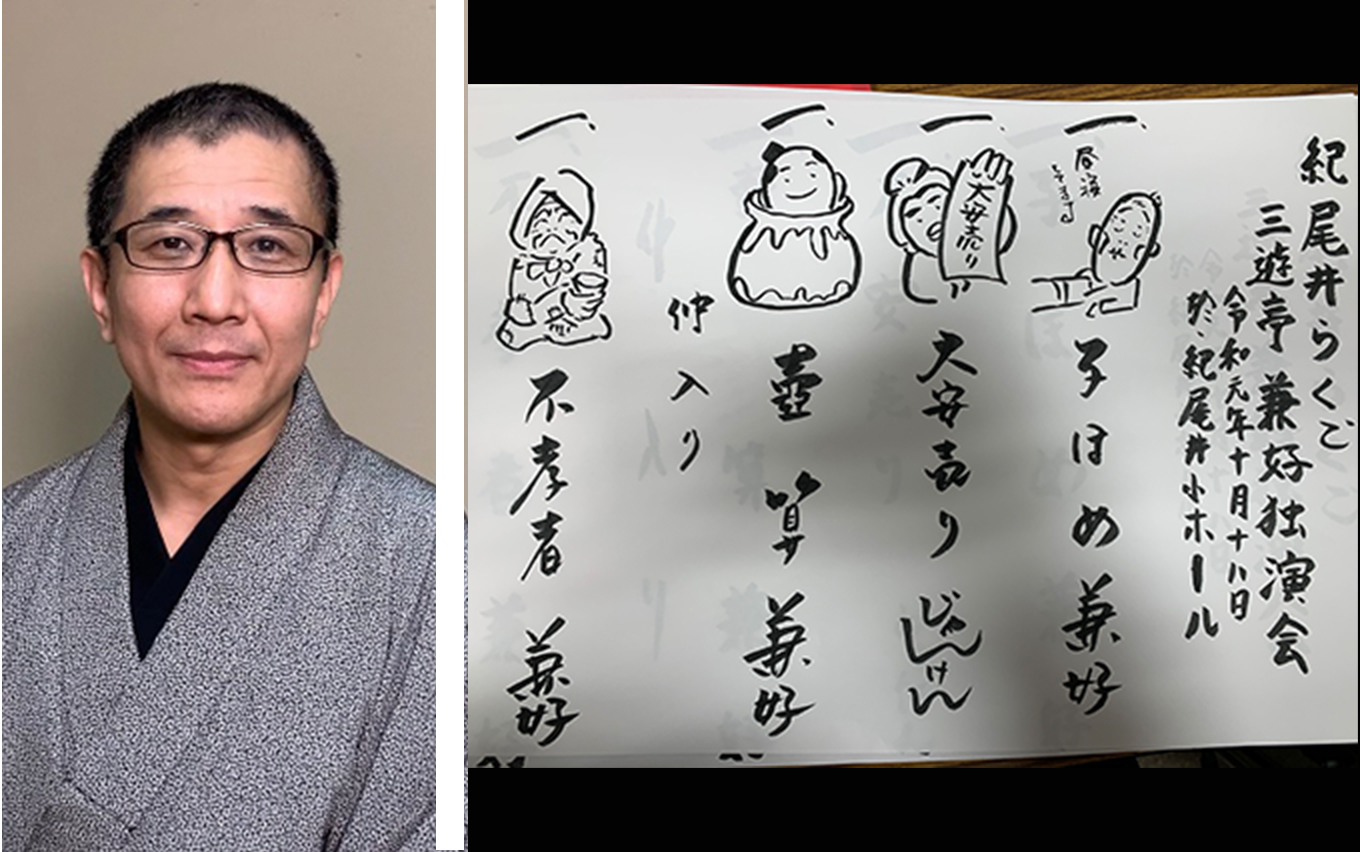 紀尾井らくご
三遊亭兼好独演会
令和元年十月十八日
於、紀尾井小ホール
一、
子ほめ 兼好
一、
大安売り
大安売り じゃんけん
一、
壺算 兼好
仲入り
一、
不孝者 兼好